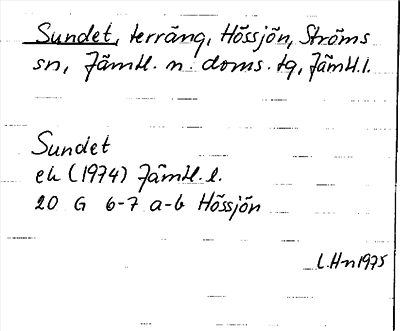 Sundet, terräng, Hössjön, Ströms
sn, Jämtl. n. doms. tg, Jämtl.l.
Sundet
ek (1974) Jämtl.l.
20 G 6-7 a-b Hössjön
L.Hn 1975